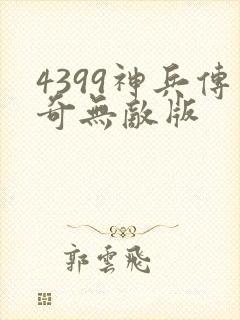 4399神兵傳
奇無敵版
郭雲飛